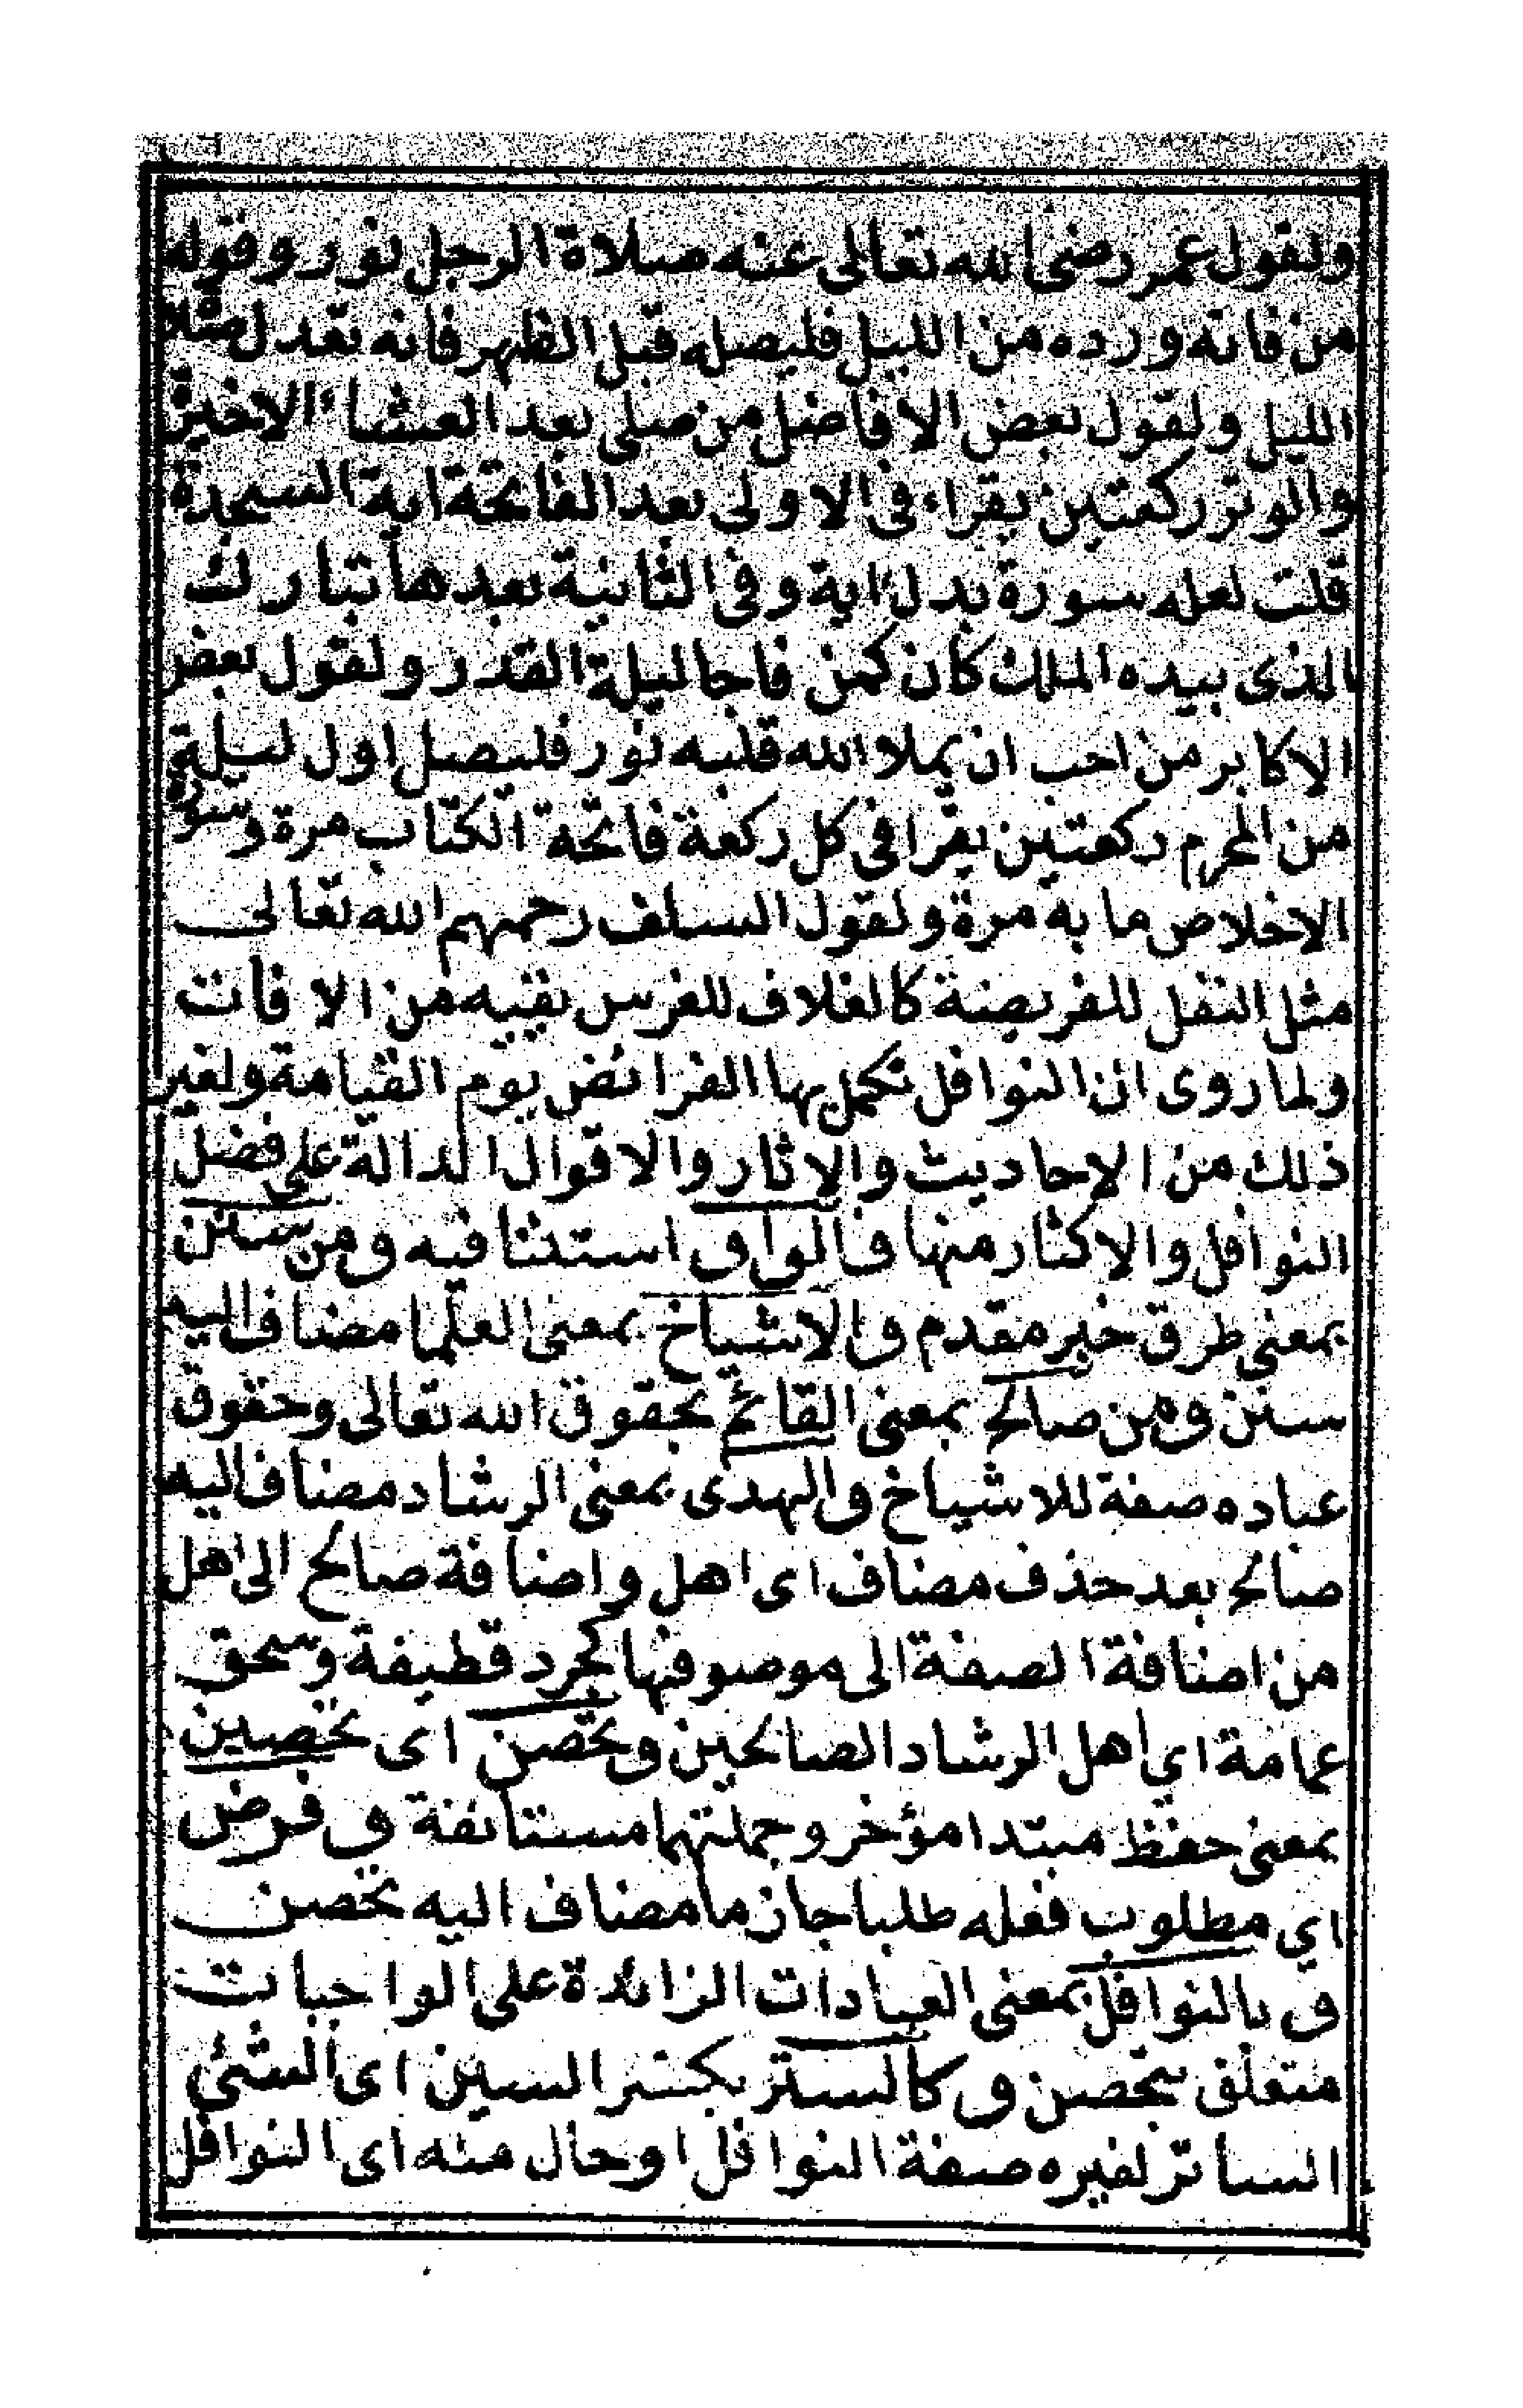 ولقول عمر رضى الله تعالى عنه صلاة الرجل نور وقوله
من فاته ورده من الليل فليصله قبل الظهر فانه تعدل صلاة
الليل ولقول بعض الافاضل من صلى بعد العشاء الاخيرة
والوتر ركعتين يقراء فى الاولى بعد الفاتحة اية السجدة
قلت لعله سورة بدل اية وفى الثانية بعدها تبارك
الذى بيده الملك كان كمن فاجا ليلة القدر ولقول بعض
الاكابر من احب ان يملا الله قلبه نور فليصل اول ليلة
من المحرم ركعتين يقرا فى كل ركعة فاتحة الكتاب مرة وسورة
الاخلاص ماية مرة ولقول السلف رحمهم الله تعالى
مثل النفل للفريضة كالغلاف للغرس يقيه من الافات
ولما روى ان النوافل تكمل بها الفرائض يوم القيامة ولغير
ذلك من الاحاديث والاثار والاقوال الدالة على فضل
النوافل والاكثار منها فالواو استئنافيه ومن سنن
بمعنى طرق خبر مقدم والاشياخ بمعنى العلما مضاف اليه
سنن ومن صالح بمعنى القائم بحقوق الله تعالى وحقوق
عباده صفة للاشياخ والهدى بمعنى الرشاد مضاف اليه
صالح بعد حذف مضاف اى اهل واضافة صالح الى اهل
من اضافة الصفة الى موصوفها كجرد قطيفة وسحق
عمامة اي اهل الرشاد الصالحين وتحصن اى تحصين
بمعنى حفظ مبتدا مؤخر وجملتهما مستانفة و فرض
اي مطلوب فعله طلبا جازما مضاف اليه تحصن
و بالنوافل بمعنى العبادات الزائدة على الواجبات
متعلق بتحصن و كالستر بكسر السين اى الشئ
الساتر لغيره صفة النوافل او حال منه اى النوافل